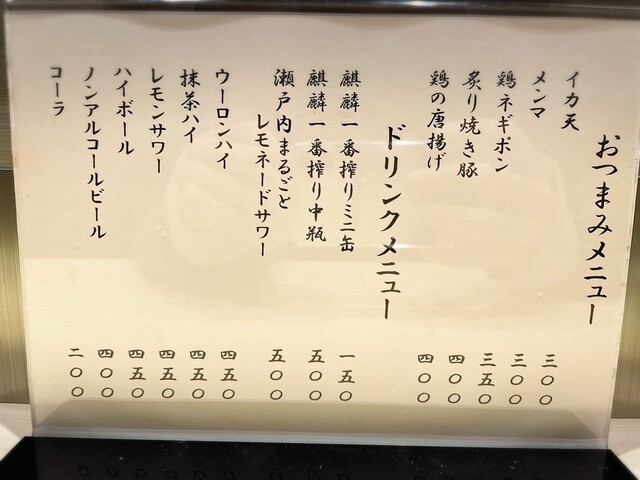 おつまみメニュー
イカ天 三〇〇
メンマ 三〇〇
鶏ネギポン 三五〇
炙り焼き豚 四〇〇
鶏の唐揚げ 四〇〇
ドリンクメニュー
麒麟一番搾りミニ缶 一五〇
麒麟一番搾り中瓶 五〇〇
瀬戸内まるごと
レモネードサワー 五〇〇
ウーロンハイ 四五〇
抹茶ハイ 四五〇
レモンサワー 四五〇
ハイボール 四五〇
ノンアルコールビール 四〇〇
コーラ 二〇〇